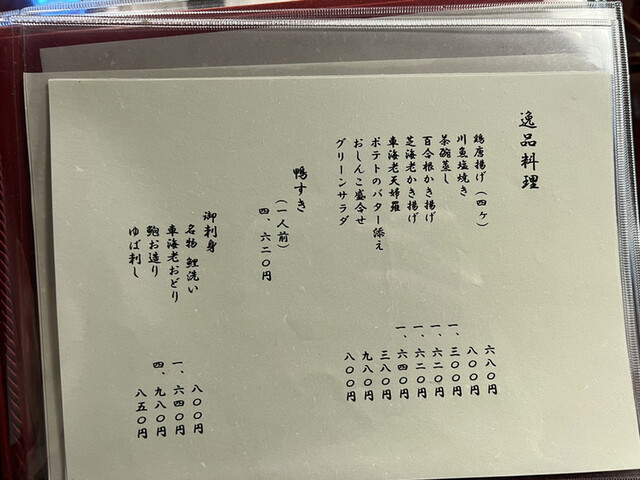 逸品料理
鶏唐揚げ（四ヶ） 六八〇円
川魚塩焼き 八〇〇円
茶碗蒸し 一、三〇〇円
百合根かき揚げ 一、六二〇円
芝海老かき揚げ 一、六二〇円
車海老天婦羅 一、六四〇円
ポテトのバター添え 三八〇円
おしんこ盛合せ 九八〇円
グリーンサラダ 八〇〇円
鴨すき
（一人前）
四、六二〇円
御刺身
名物 鯉洗い 八〇〇円
車海老おどり 一、六四〇円
鮑お造り 四、九八〇円
ゆば刺し 八五〇円